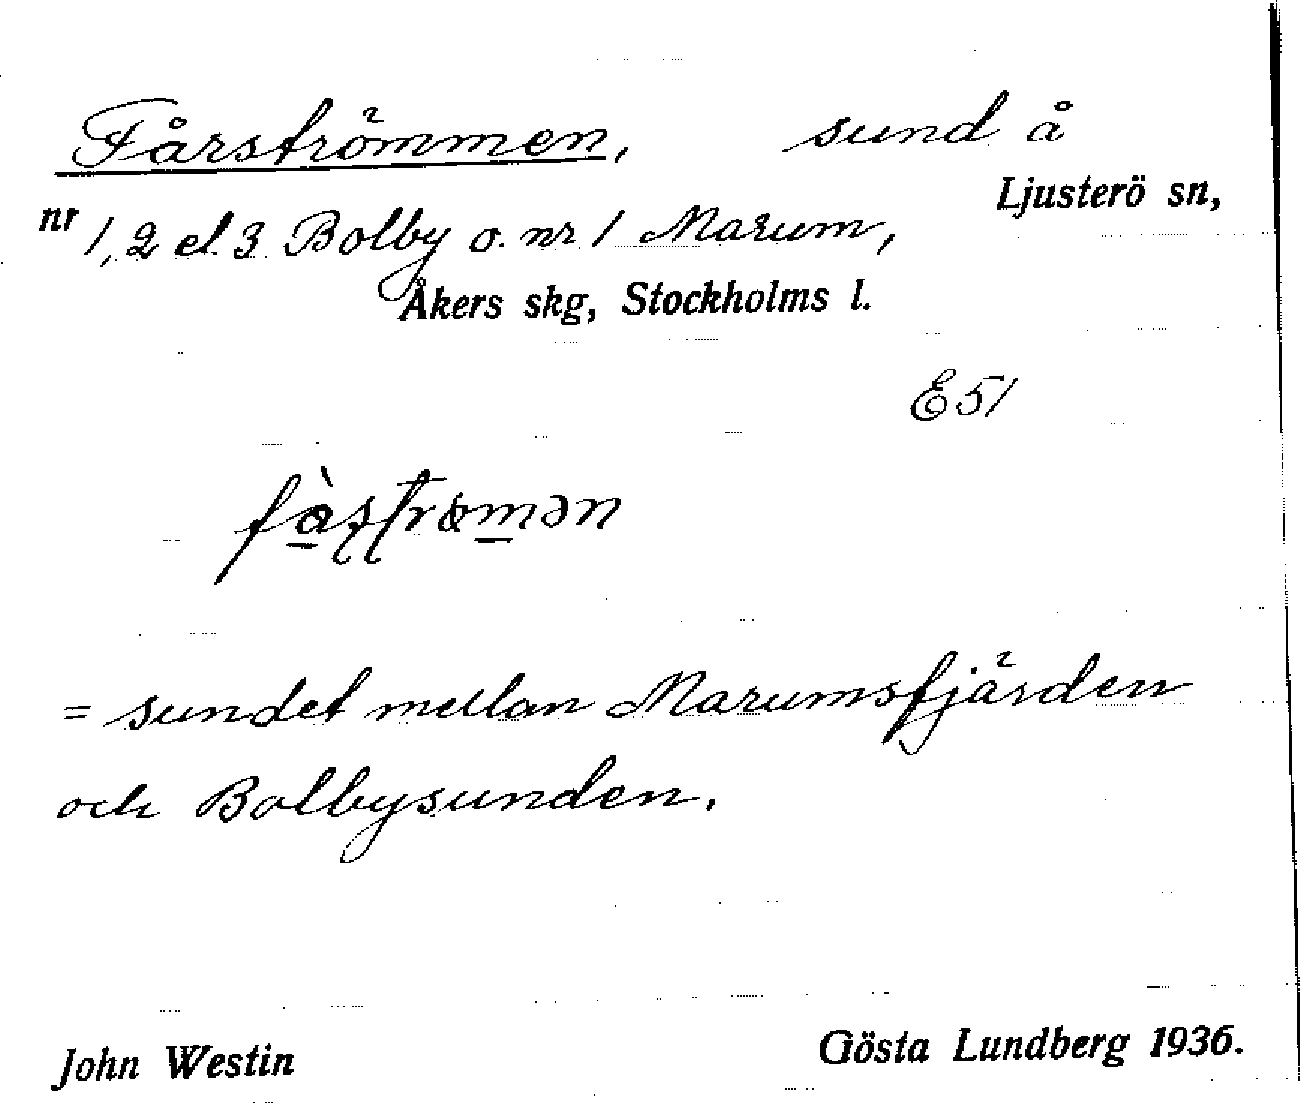 Fårströmmen, sund å
Ljusterö sn,
nr 1, 2 el. 3 Bolby o. nr 1 Marum,
Åkers skg, Stockholms l.
E51
= sundet mellan Marumsfjärden
och Bolbysunden.
John Westin Gösta Lundberg 1936.